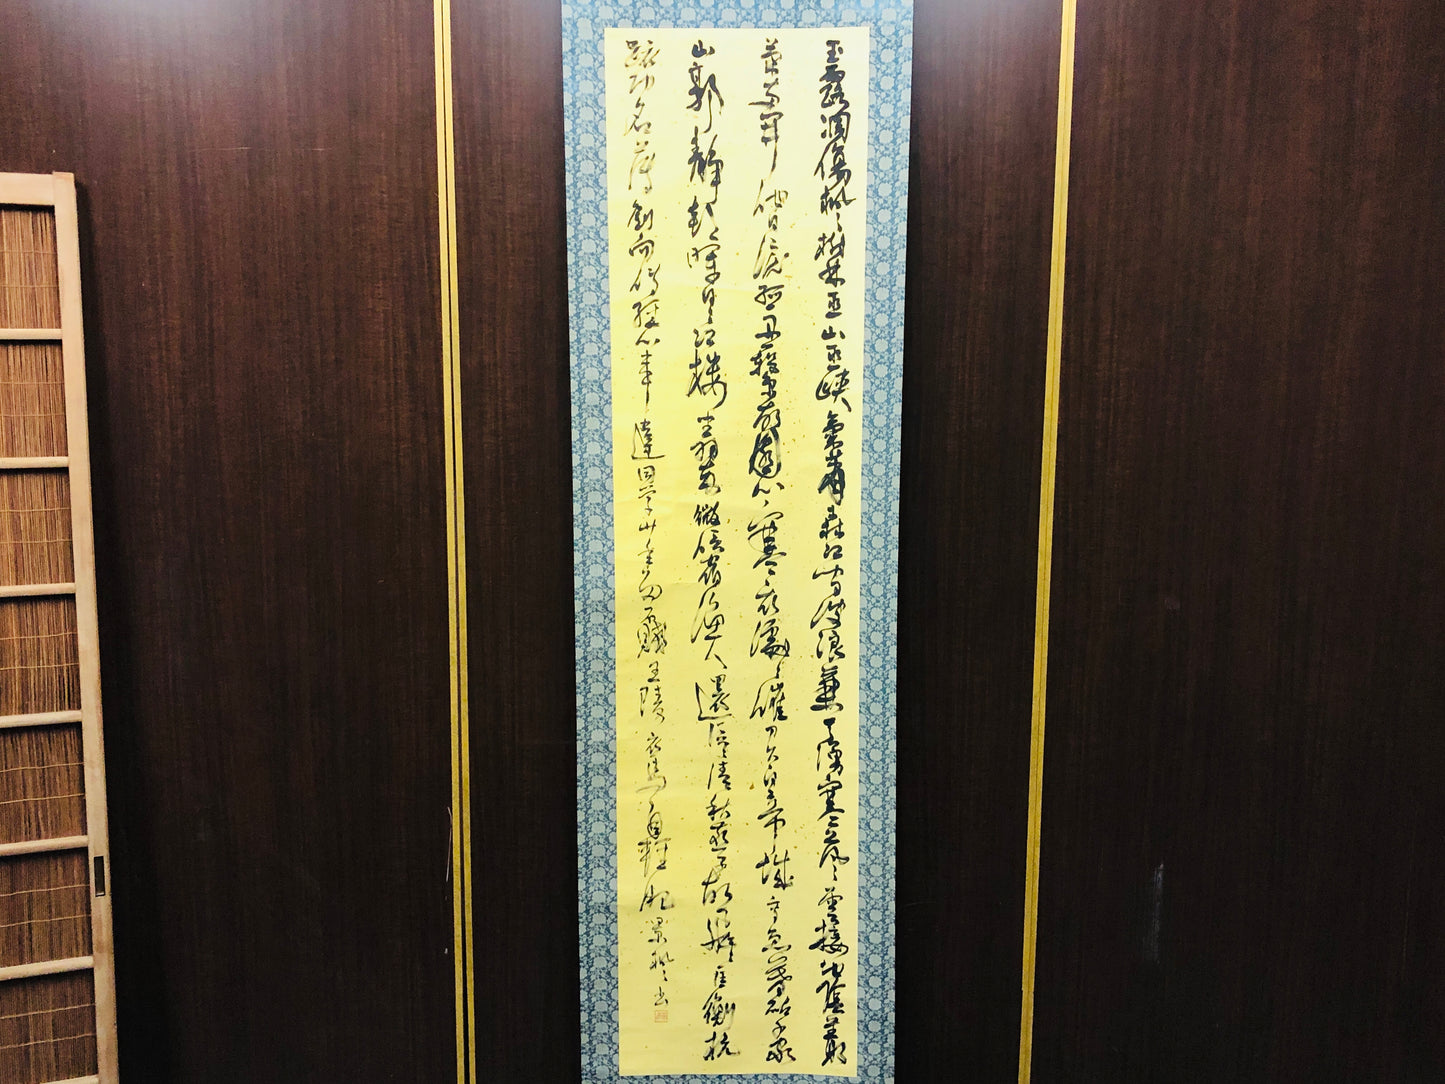 玉露凋傷楓樹林巫山巫峽氣蕭森江間波浪兼天湧塞上風雲接地陰叢
菊兩開他日淚孤舟一繫故園心寒衣處處催刀尺白帝城高急暮砧千家
山郭靜朝暉日日江樓坐翠微信宿漁人還泛泛清秋燕子故飛飛匡衡抗
疏功名薄劉向傳經心事違同學少年多不賤五陵衣馬自輕肥 楓書